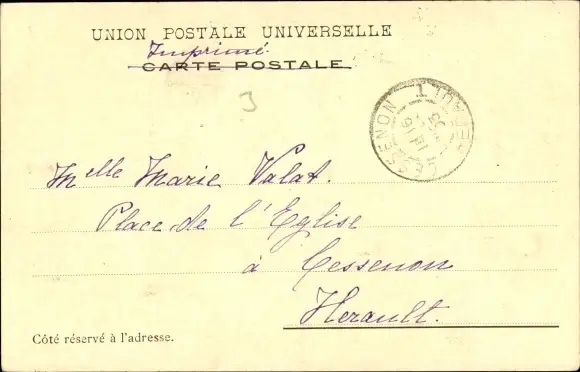 UNION POSTALE UNIVERSELLE
Imprimé
CARTE POSTALE
3
CESSENON
HERAULT
Melle Marie Valat.
Place de l'Eglise
à Cessenon
Herault.
Côté réservé à l'adresse.